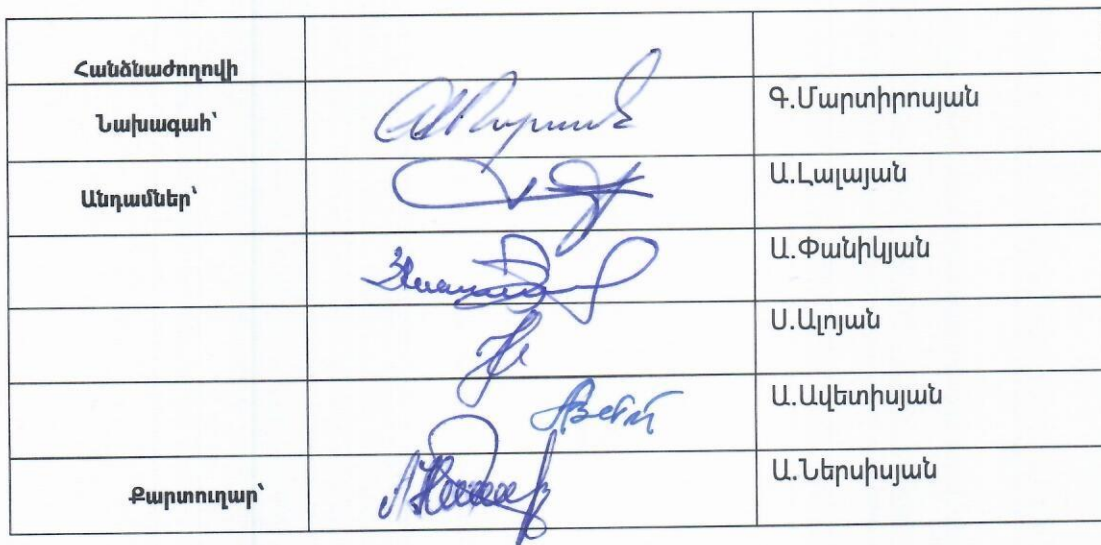 Հանձնաժողովի
Նախագահ՝ Գ.Մարտիրոսյան
Անդամներ՝ Ա.Լալայան
Ա.Փանիկյան
Ս.Ալոյան
Ա.Ավետիսյան
Քարտուղար՝ Ա.Ներսիսյան